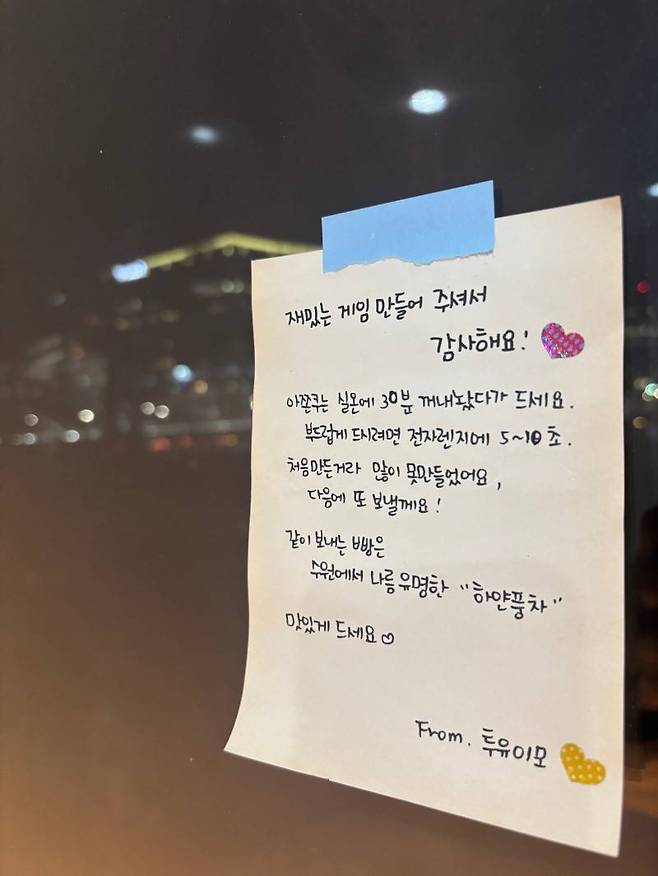 재밌는 게임 만들어 주셔서
감사해요!
아쫀쿠는 실온에 30분 꺼내놨다가 드세요.
부드럽게 드시려면 전자렌지에 5~10초.
처음만든거라 많이 못만들었어요,
다음에 또 보낼께요!
같이 보내는 빵은
수원에서 나름 유명한 "하얀풍차"
맛있게 드세요♡
From. 투유이모